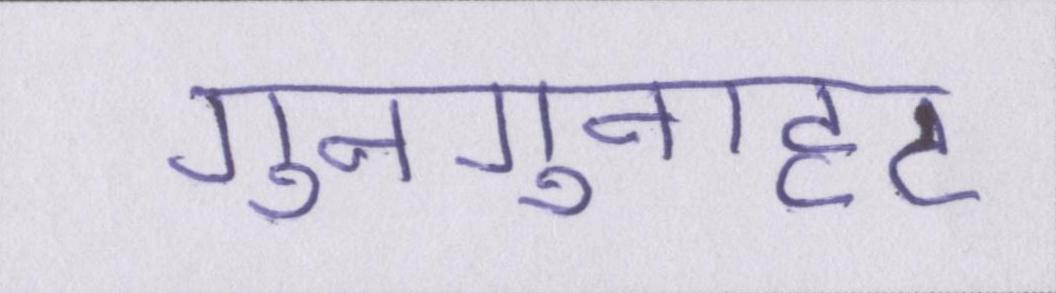 गुनगुनाहट